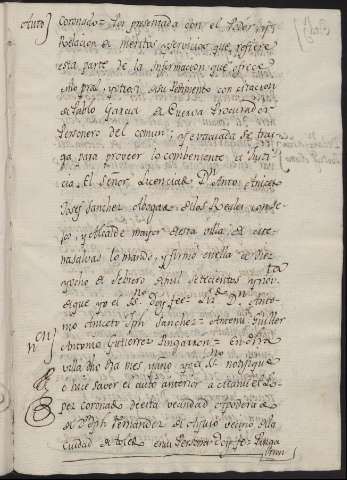 Auto] Coronado = Por presentada con el Poder, y
Relacion de meritos y servicios que refiere
esta parte de la Informacion que ofrece
con citacion
de Pablo Garcia de Cuerva Procurador
Personero del comun; y evacuada se trai
ga para proveer lo combeniente a Justi
cia. El Señor Licenciado Dn Anto Aniceto
Josef Sanchez Abogado de los Reales Conse
jos, y Alcalde mayor desta villa de
lo mando, y firmó en ella a diez
y ocho de febrero de mil setecientos y nov
de que yo el Ss.no Doy fee = Lzdo Dn Anto
nio Aniceto Jph Sanchez = Antemi Guillor
Antonio Gutierrez Lingarron = En dha
villa dho dia mes y año yo el Ss.no notifique
e hice saver el auto anterior a Manuel Lo
pez Coronado de esta vecindad Apoderado
de Joseph Fernandez de vecino de la
Ciudad de en su Persona Doy fee = Linga
rron